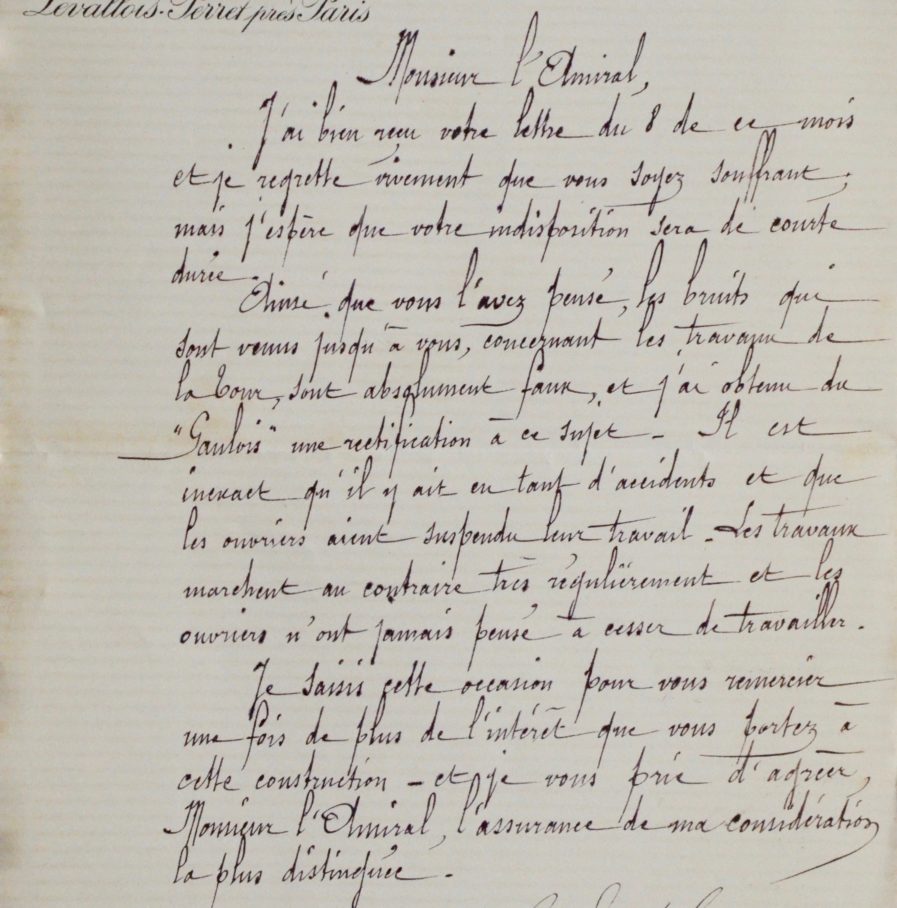 Levallois-Perret près Paris
Monsieur l'Amiral,
J'ai bien reçu votre lettre du 8 de ce mois
et je regrette vivement que vous soyez souffrant,
mais j'espère que votre indisposition sera de courte
durée.
Ainsi que vous l'avez pensé, les bruits qui
sont venus jusqu'à vous, concernant les travaux de
la Tour, sont absolument faux, et j'ai obtenu du
"Gaulois" une rectification à ce sujet - Il est
inexact qu'il y ait eu tant d'accidents et que
les ouvriers aient suspendu leur travail - Les travaux
marchent au contraire très régulièrement et les
ouvriers n'ont jamais pensé à cesser de travailler.
Je saisis cette occasion pour vous remercier
une fois de plus de l'intérêt que vous portez à
cette construction - et je vous prie d'agréer,
Monsieur l'Amiral, l'assurance de ma considération
la plus distinguée.